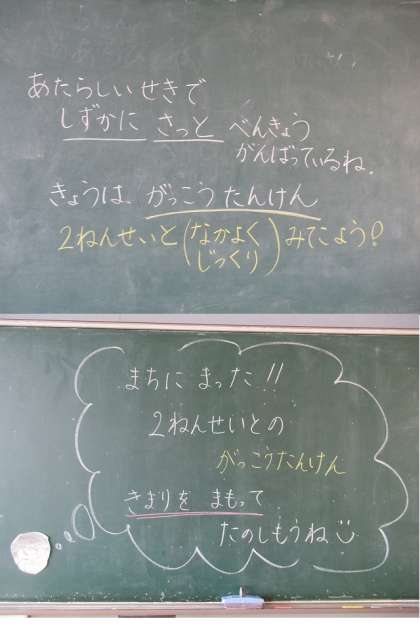 あたらしいせきで
しずかに さっと べんきょう
がんばっているね.
きょうは、がっこうたんけん
2ねんせいと(なかよく じっくり)みてこよう?
まちに まった!!
2ねんせいとの
がっこうたんけん
きまりを まもって
たのしもうね